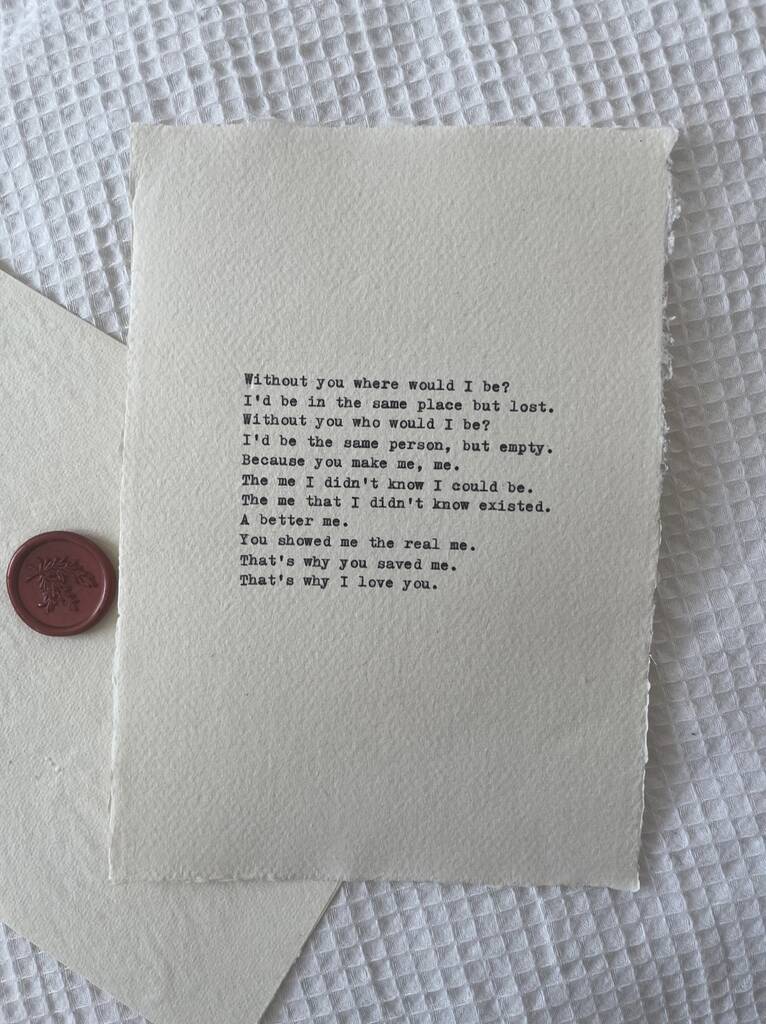 Without you where would I be?
I'd be in the same place but lost.
Without you who would I be?
I'd be the same person, but empty.
Because you make me, me.
The me I didn't know I could be.
The me that I didn't know existed.
A better me.
You showed me the real me.
That's why you saved me.
That's why I love you.